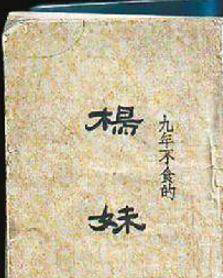 九年不食的
楊妹